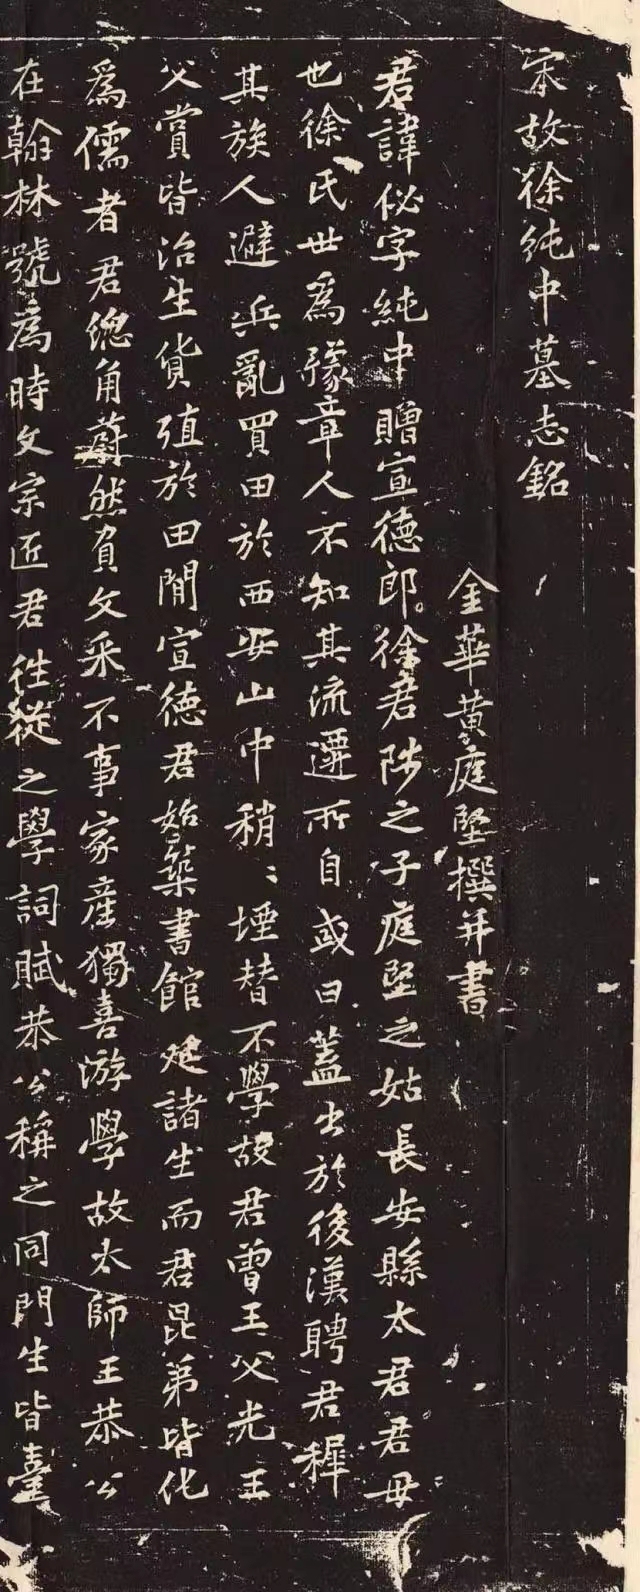 宋故徐純中墓志銘
金華黃庭堅撰并書
君諱佖字純中贈宣德郎徐君陟之子庭堅之姑長安縣太君君母
也徐氏世爲豫章人不知其流遷所自或曰蓋出於後漢聘君穉
其族人避兵亂買田於西安山中稍〻堙替不學故君曾王父光王
父賞皆治生貨殖於田閒宣德君始築書館延諸生而君昆弟皆化
爲儒者君總角蔚然負文采不事家產獨喜游學故太師王恭公
在翰林號爲時文宗匠君往從之學詞賦恭公稱之同門生皆臺